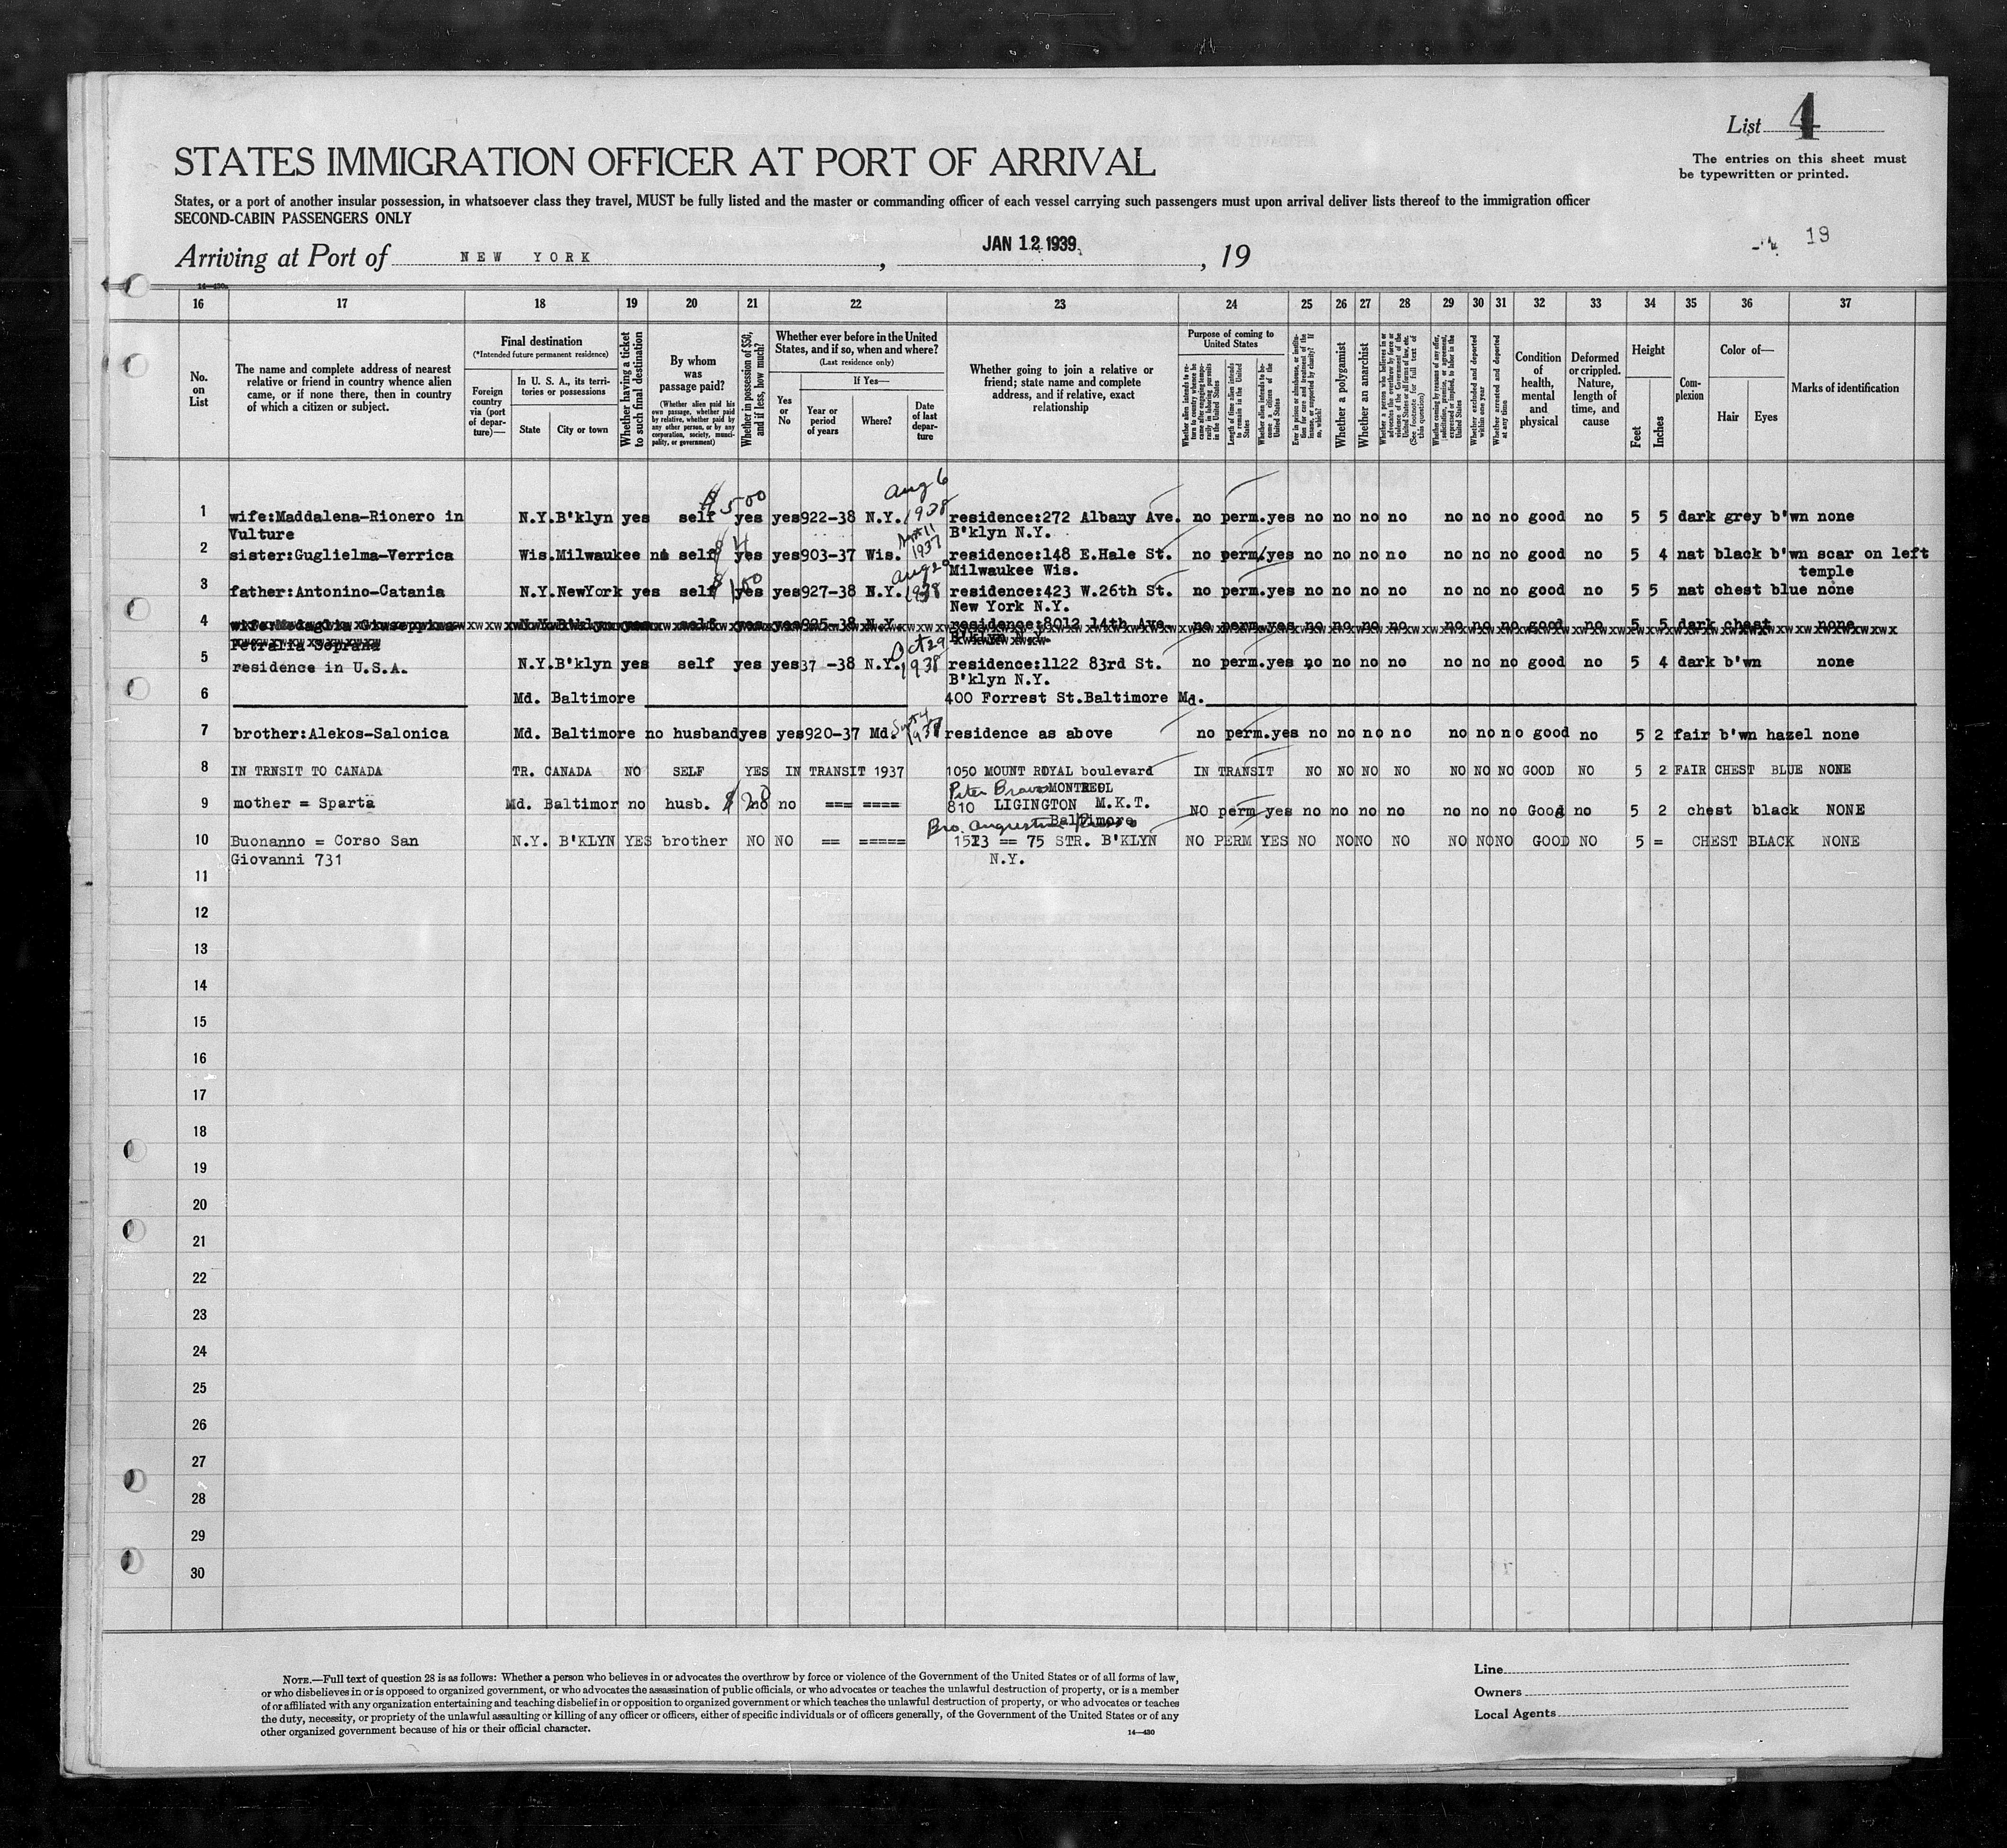 List 4
The entries on this sheet must
be typewritten or printed.
STATES IMMIGRATION OFFICER AT PORT OF ARRIVAL
States, or a port of another insular possession, in whatsoever class they travel, MUST be fully listed and the master or commanding officer of each vessel carrying such passengers must upon arrival deliver lists thereof to the immigration officer
SECOND-CABIN PASSENGERS ONLY
Arriving at Port of NEW YORK, JAN 12 1939, 19
19
14-430
16 17 18 19 20 21 22 23 24 25 26 27 28 29 30 31 32 33 34 35 36 37
No. on List
The name and complete address of nearest
relative or friend in country whence alien
came, or if none there, then in country
of which a citizen or subject.
Final destination
(*Intended future permanent residence)
Foreign country via (port of departure)—
In U. S. A., its territories or possessions
State
City or town
Whether having a ticket to such final destination
By whom was passage paid?
(Whether alien paid his own passage, whether paid by relative, whether paid by any other person, or by any corporation, society, municipality, or government)
Whether in possession of $50, and if less, how much?
Whether ever before in the United
States, and if so, when and where?
(Last residence only)
Yes or No
If Yes—
Year or period of years
Where?
Date of last departure
Whether going to join a relative or
friend; state name and complete
address, and if relative, exact
relationship
Purpose of coming to United States
Whether alien intends to return to country whence he came after engaging temporarily in laboring pursuits in the United States
Length of time alien intends to remain in the United States
Whether alien intends to become a citizen of the United States
Ever in prison or almshouse, or institution for care and treatment of the insane, or supported by charity? If so, which?
Whether a polygamist
Whether an anarchist
Whether a person who believes in or advocates the overthrow by force or violence of the Government of the United States or all forms of law, etc. (See footnote for full text of this question)
Whether coming by reason of any offer, solicitation, promise, or agreement, expressed or implied, to labor in the United States
Whether excluded and deported within one year
Whether arrested and deported at any time
Condition of health, mental and physical
Deformed or crippled. Nature, length of time, and cause
Height
Feet
Inches
Complexion
Color of—
Hair
Eyes
Marks of identification
Aug 6
1 wife:Maddalena-Rionero in N.Y. B'klyn yes self $500 yes yes 922-38 N.Y. 1938 residence:272 Albany Ave. no perm. yes no no no no no no no good no 5 5 dark grey b'wn none
Vulture B'klyn N.Y.
2 sister:Guglielma-Verrica Wis. Milwaukee no self $4 yes yes 903-37 Wis. 1937 residence:148 E.Hale St. no perm. yes no no no no no no no good no 5 4 nat black b'wn scar on left
Milwaukee Wis. temple
3 father:Antonino-Catania N.Y. NewYork yes self $100 yes yes 927-38 N.Y. 1938 residence:423 W.26th St. no perm. yes no no no no no no no good no 5 5 nat chest blue none
New York N.Y.
4 wife:Medaglia Giuseppina N.Y. B'klyn yes self yes yes 925-38 N.Y. residence:8012 14th Ave. no perm. yes no no no no no no no good no 5 5 dark chest none
Petralia Soprana B'klyn N.Y.
Oct 29
5 residence in U.S.A. N.Y. B'klyn yes self yes yes 37 -38 N.Y. 1938 residence:1122 83rd St. no perm. yes no no no no no no no good no 5 4 dark b'wn none
B'klyn N.Y.
6 Md. Baltimore 400 Forrest St.Baltimore Md.
7 brother:Alekos-Salonica Md. Baltimore no husband yes yes 920-37 Md. Sept 4 1937 residence as above no perm. yes no no no no no no no good no 5 2 fair b'wn hazel none
8 IN TRNSIT TO CANADA TR. CANADA NO SELF YES IN TRANSIT 1937 1050 MOUNT ROYAL boulevard IN TRANSIT NO NO NO NO NO NO NO GOOD NO 5 2 FAIR CHEST BLUE NONE
MONTREOL
9 mother = Sparta Md. Baltimor no husb. $28 no === ==== 810 LIGINGTON M.K.T. NO perm yes no no no no no no no Good no 5 2 chest black NONE
Baltimore
10 Buonanno = Corso San N.Y. B'KLYN YES brother NO NO == ===== 1523 == 75 STR. B'KLYN NO PERM YES NO NO NO NO NO NO NO GOOD NO 5 = CHEST BLACK NONE
Giovanni 731 N.Y.
11
12
13
14
15
16
17
18
19
20
21
22
23
24
25
26
27
28
29
30
NOTE.—Full text of question 28 is as follows: Whether a person who believes in or advocates the overthrow by force or violence of the Government of the United States or of all forms of law,
or who disbelieves in or is opposed to organized government, or who advocates the assassination of public officials, or who advocates or teaches the unlawful destruction of property, or is a member
of or affiliated with any organization entertaining and teaching disbelief in or opposition to organized government or which teaches the unlawful destruction of property, or who advocates or teaches
the duty, necessity, or propriety of the unlawful assaulting or killing of any officer or officers, either of specific individuals or of officers generally, of the Government of the United States or of any
other organized government because of his or their official character.
14-430
Line
Owners
Local Agents